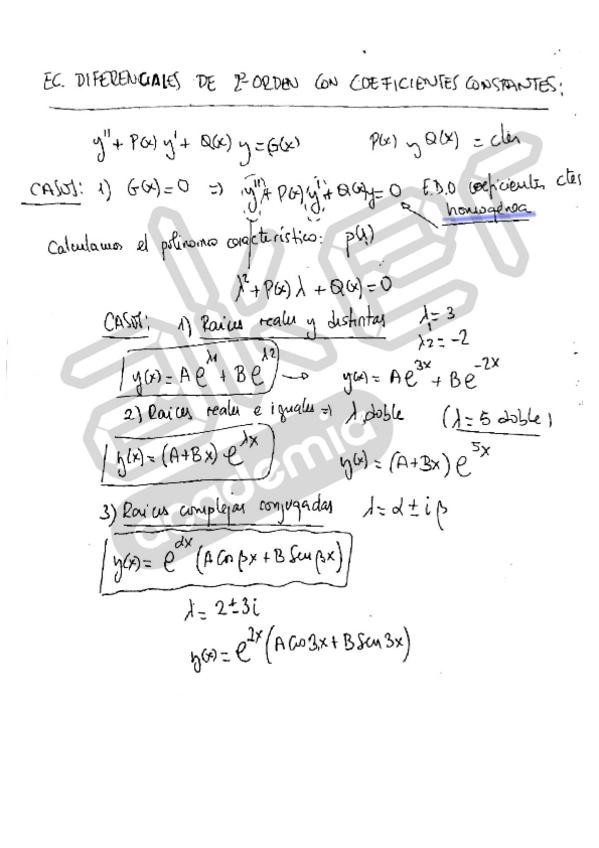 EC. DIFERENCIALES DE 2º ORDEN CON COEFICIENTES CONSTANTES:
y'' + P(x) y' + Q(x) y = G(x) P(x) y Q(x) = ctes
CASOS: 1) G(x) = 0 ⇒ y'' + P(x) y' + Q(x) y = 0 E.D.O coeficientes ctes
homogénea
Calculamos el polinomio característico: p(λ)
λ² + P(x) λ + Q(x) = 0
CASOS: 1) Raices reales y distintas λ₁ = 3
λ₂ = -2
y(x) = A e^λ1 + B e^λ2 → y(x) = A e^3x + B e^-2x
2) Raices reales e iguales ⇒ λ doble (λ = 5 doble)
y(x) = (A+Bx) e^λx y(x) = (A+Bx) e^5x
3) Raices complejas conjugadas λ = α ± i β
y(x) = e^αx (A Cos βx + B Sen βx)
λ = 2 ± 3i
y(x) = e^2x (A Cos 3x + B Sen 3x)
aker
academia